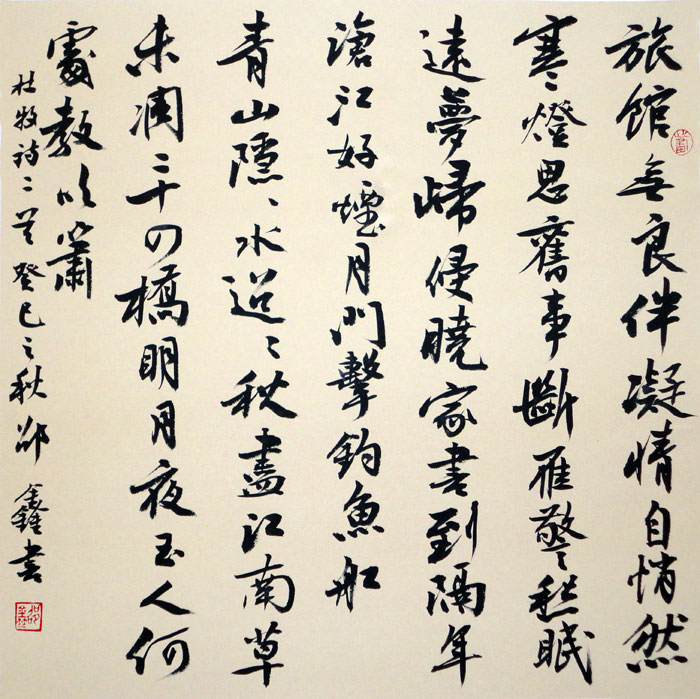 旅館無良伴凝情自悄然
寒燈思舊事斷雁警愁眠
遠夢歸侵曉家書到隔年
滄江好煙月門擊釣魚舡
青山隱〻水迢〻秋盡江南草
未凋二十四橋明月夜玉人何
處教吹簫
杜牧詩二首癸巳之秋邵書